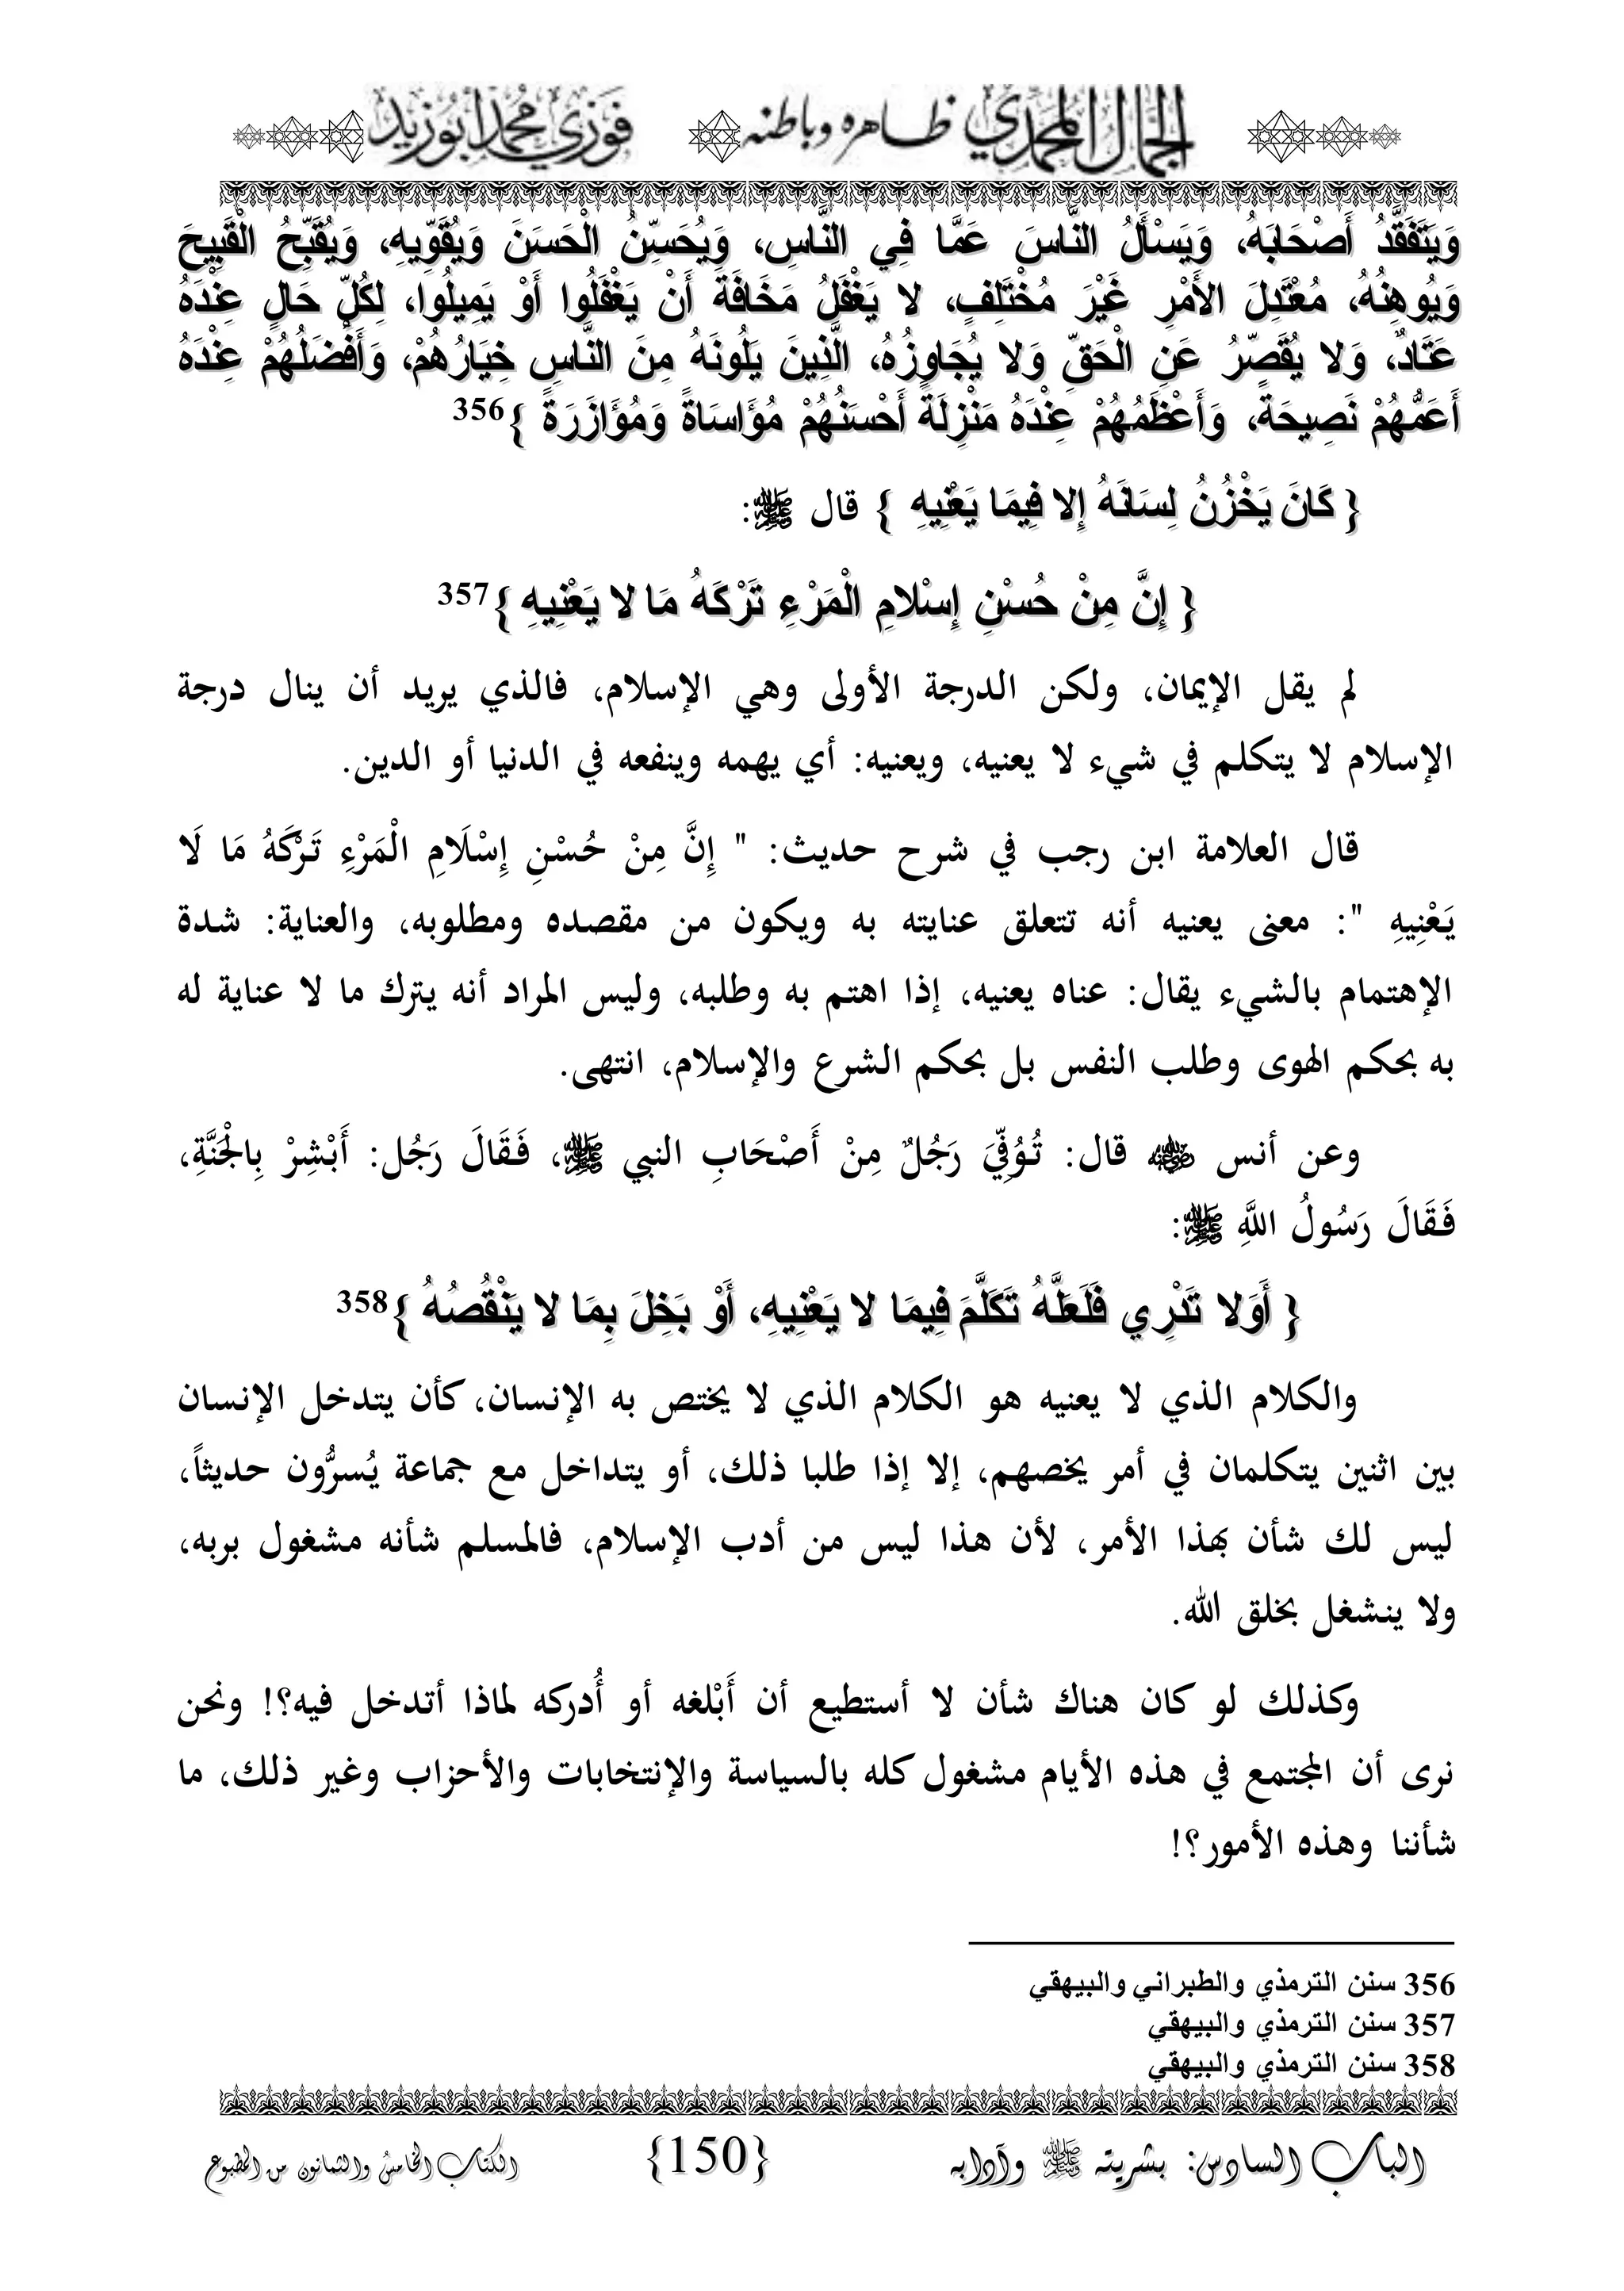 الجمال المحمدي ظاهره وباطنه فوزي محمد أبوزيد
وَيَتَفَقَّدُ أَصْحَابَهُ، وَيَسْأَلُ النَّاسَ عَمَّا فِي النَّاسِ، وَيُحَسِّنُ الْحَسَنَ وَيُقَوِّيهِ، وَيُقَبِّحُ الْقَبِيحَ
وَيُوهِنُهُ، مُعْتَدِلَ الأَمْرِ غَيْرَ مُخْتَلِفٍ، لا يَغْفَلُ مَخَافَةَ أَنْ يَغْفَلُوا أَوْ يَمِيلُوا، لِكُلِّ حَالٍ عِنْدَهُ
عَتَادٌ، وَلا يُقَصِّرُ عَنِ الْحَقِّ وَلا يُجَاوِزُهُ، الَّذِينَ يَلُونَهُ مِنَ النَّاسِ خِيَارُهُمْ، وَأَفْضَلُهُمْ عِنْدَهُ
أَعَمُّهُمْ نَصِيحَةً، وَأَعْظَمُهُمْ عِنْدَهُ مَنْزِلَةً أَحْسَنُهُمْ مُؤَاسَاةً وَمُؤَازَرَةً }356
{ كَانَ يَخْزُنُ لِسَانَهُ إِلا فِيمَا يَعْنِيهِ } قال ﷺ:
{ إِنَّ مِنْ حُسْنِ إِسْلامِ الْمَرْءِ تَرْكَهُ مَا لا يَعْنِيهِ }357
لم يقل الإيمان، ولكن الدرجة الأولى وهي الإسلام، فالذي يريد أن ينال درجة
الإسلام لا يتكلم في شيء لا يعنيه، ويعنيه: أي يهمه وينفعه في الدنيا أو الدين.
قال العلامة ابن رجب في شرح حديث: " إِنَّ مِنْ حُسْنِ إِسْلَامِ الْمَرْءِ تَرْكَهُ مَا لَا
يَعْنِيهِ ": معنى يعنيه أنه تتعلق عنايته به ويكون من مقصده ومطلوبه، والعناية: شدة
الإهتمام بالشيء يقال: عناه يعنيه، إذا اهتم به وطلبه، وليس المراد أنه يترك ما لا عناية له
به بحكم الهوى وطلب النفس بل بحكم الشرع والإسلام، انتهى.
وعن أنس رضي الله عنه قال: تُوُفِّيَ رَجُلٌ مِنْ أَصْحَابِ النبي ﷺ، فَقَالَ رَجُل: أَبْشِرْ بِالْجَنَّةِ،
فَقَالَ رَسُولُ اللَّهِ ﷺ:
{ أَوَلا تَدْرِي فَلَعَلَّهُ تَكَلَّمَ فِيمَا لا يَعْنِيهِ، أَوْ بَخِلَ بِمَا لا يَنْقُصُهُ }358
والكلام الذي لا يعنيه هو الكلام الذي لا يختص به الإنسان، كأن يتدخل الإنسان
بين اثنين يتكلمان في أمر يخصهم، إلا إذا طلبا ذلك، أو يتداخل مع جماعة يُسرُّون حديثاً،
ليس لك شأن بهذا الأمر، لأن هذا ليس من أدب الإسلام، فالمسلم شأنه مشغول بربه،
ولا ينشغل بخلق الله.
وكذلك لو كان هناك شأن لا أستطيع أن أَبْلغه أو أُدركه لماذا أتدخل فيه؟! ونحن
نرى أن المجتمع في هذه الأيام مشغول كله بالسياسة والإنتخابات والأحزاب وغير ذلك، ما
شأننا وهذه الأمور؟!
356 سنن الترمذي والطبراني والبيهقي
357 سنن الترمذي والبيهقي
358 سنن الترمذي والبيهقي
الباب السادس: بشريته ﷺ وآدابه {150} الكتاب الخامس والثمانون من المطبوع